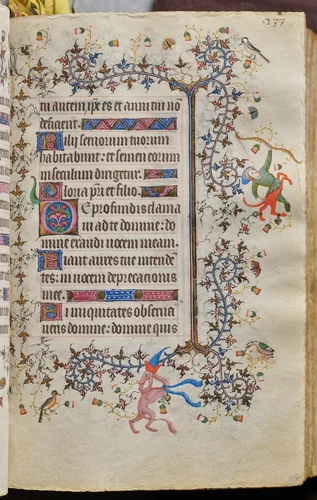 233
tu autem ip̄e es et anni tui nō
deficient.
Filij seruorum tuorum
habitabunt: et semen eorum
in seculum dirigetur.
Gloria pr̄i et filio.
De profundis clama
ui ad te domine: do
mine exaudi uocem meam.
Fiant aures tue intende
tes: in uocem deprecacionis
mee.
Si iniquitates obserua
ueris domine: domine quis